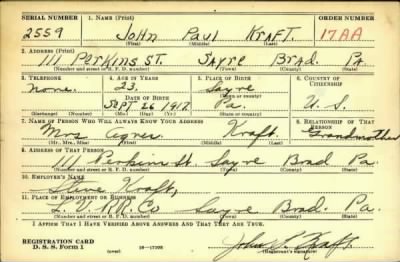 SERIAL NUMBER 1. NAME (Print) ORDER NUMBER
2559 JOHN PAUL KRAFT. 17AA
(First) (Middle) (Last)
2. ADDRESS (Print)
111 PERKINS ST. SAYRE BRAD. PA.
(Number and street or R. F. D. number) (Town) (County) (State)
3. TELEPHONE 4. AGE IN YEARS 5. PLACE OF BIRTH 6. COUNTRY OF CITIZENSHIP
None. 23 Sayre
DATE OF BIRTH (Town or county)
SEPT 26 1917 Pa. U.S.
(Exchange) (Number) (Mo.) (Day) (Yr.) (State or country)
7. NAME OF PERSON WHO WILL ALWAYS KNOW YOUR ADDRESS 8. RELATIONSHIP OF THAT PERSON
Mrs Agnes Kraft. Grandmother
(Mr., Mrs., Miss) (First) (Middle) (Last)
9. ADDRESS OF THAT PERSON
111 Perkins St. Sayre Brad Pa.
(Number and street or R. F. D. number) (Town) (County) (State)
10. EMPLOYER'S NAME
Steve Kraft,
11. PLACE OF EMPLOYMENT OR BUSINESS
L.V.R.R. Co Sayre Brad. Pa.
(Number and street or R. F. D. number) (Town) (County) (State)
I AFFIRM THAT I HAVE VERIFIED ABOVE ANSWERS AND THAT THEY ARE TRUE.
REGISTRATION CARD
D. S. S. Form 1 (over) John P. Kraft.
(Registrant's signature)